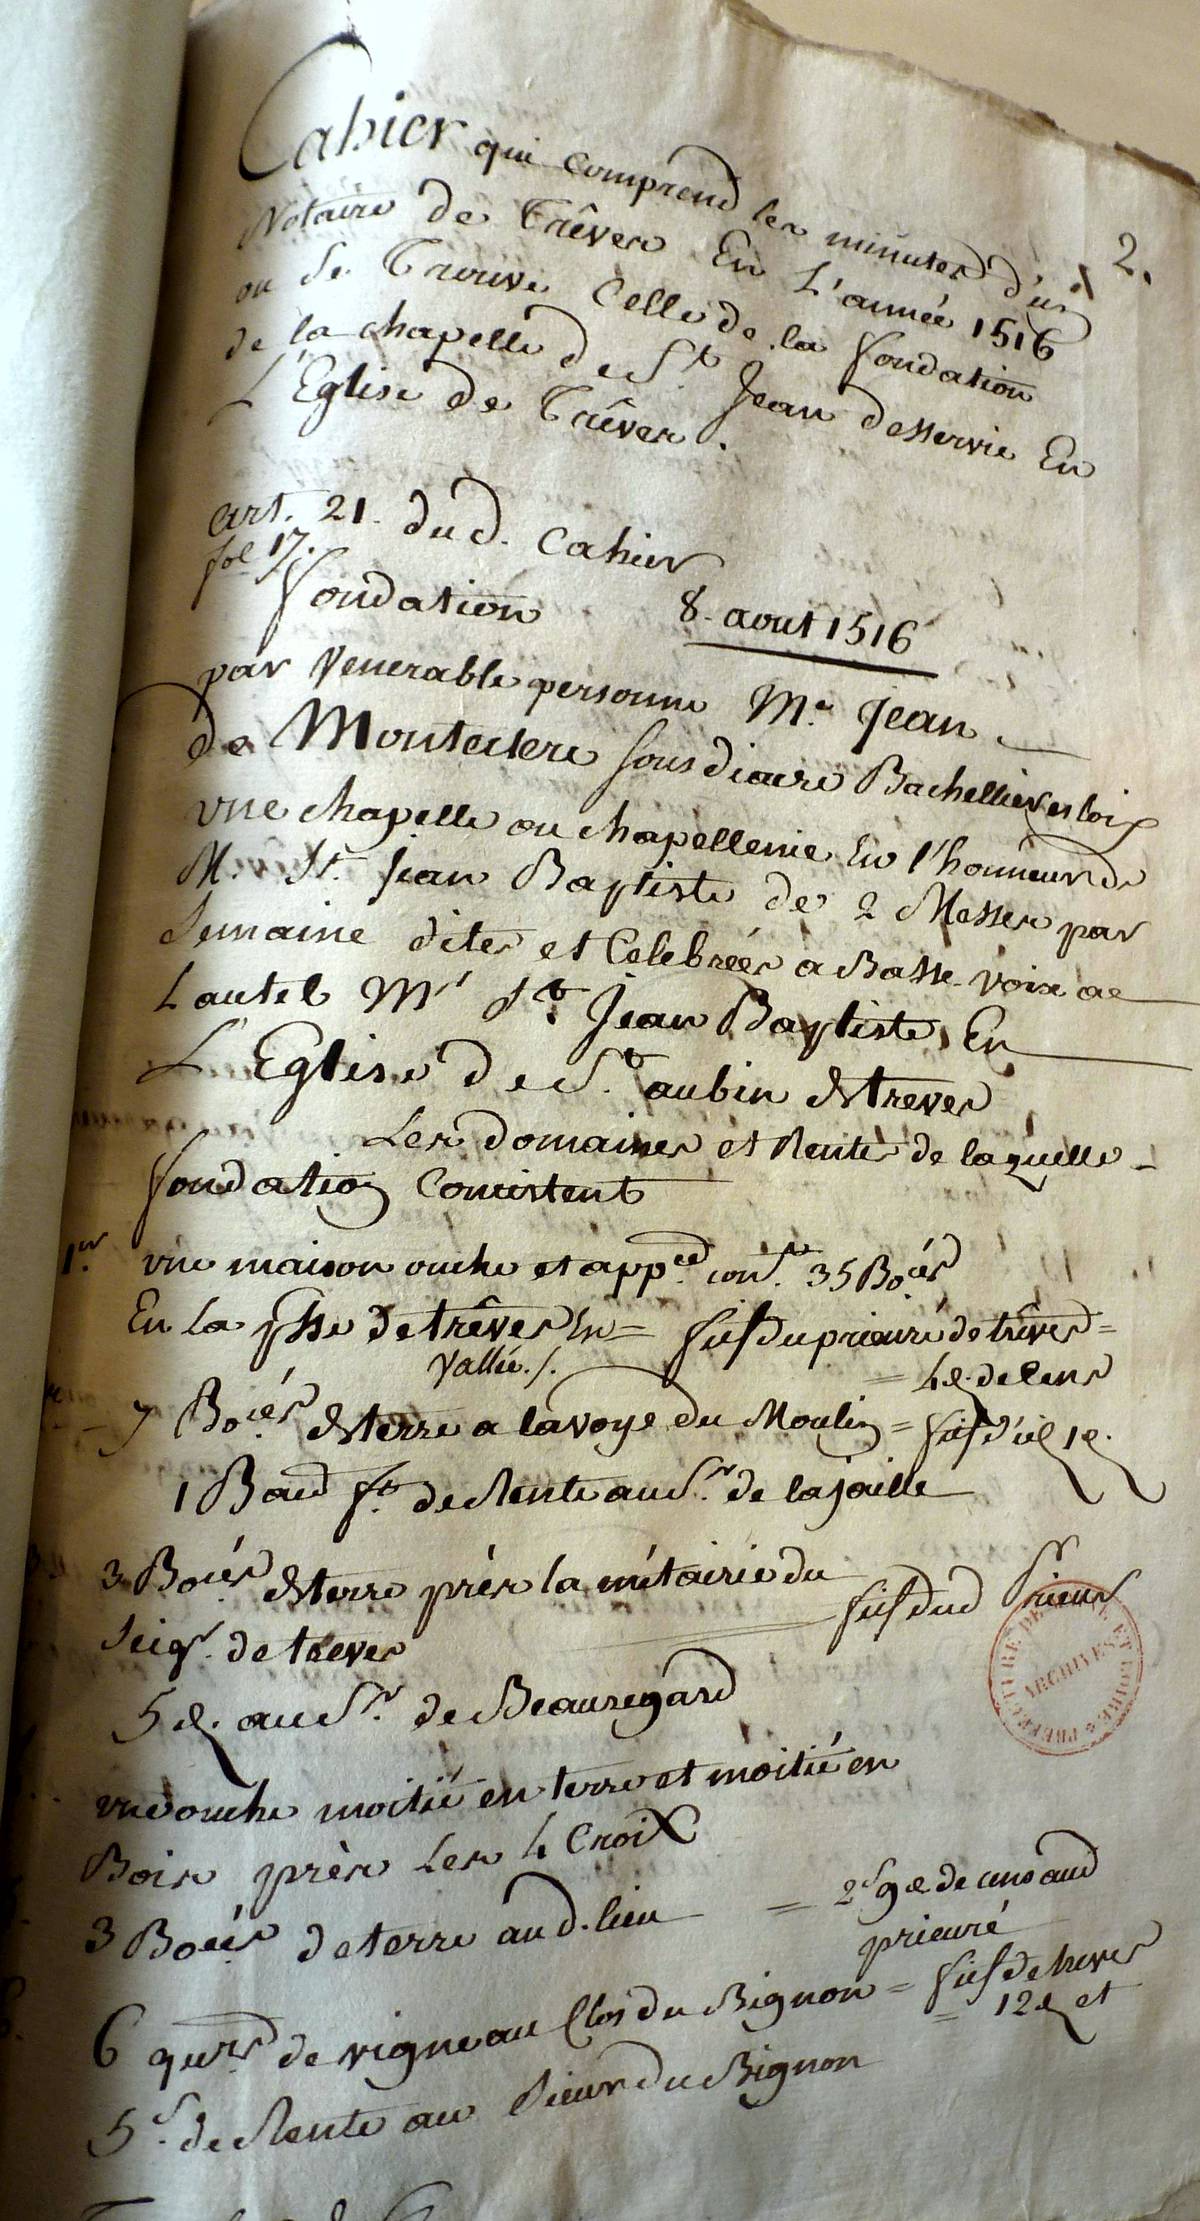 2.
Cahier qui comprend les minutes d'un
Notaire de Trêves En L'année 1516
ou se Trouve Celle de la fondation
de la chapelle de St Jean desservie En
L'Eglise de Trêves.
art. 21. dud. Cahier
fol 17.
fondation 8. aout 1516
par Venerable personne Me. Jean
de Monteclerc sous diacre Bachellier es loix
vne chapelle ou chapellenie En l'honneur de
Mr. St. Jean Baptiste de 2 Messes par
Semaine dites et Celebrées a Basse voix au
Lautel Mr St. Jean Baptiste, En
L'Eglise de St. aubin de treves
Les domaines et Rentes de laquelle
fondation Consistent
1er. vne maison ouche et appced. cont. 35 Boiés
En la psse de trêves En = fief du prieuré de trèves =
Vallée ./. = 4d. de Cens
7 Boiés de terre a la voye du Moulin = fief d'
1 Boiau ft. de Rente au Sr. de la jaille
3 Boiés de terre près la métairie du
Seigr. de treves fief dud Prieur
5 d. au Sr. de Beauregard
vne ouche moitié en terre et moitié en
Bois près Les 4 Croix
3 Boiés de terre aud. lieu = 2s 9d de cens aud
prieuré
6 quiers de vigne au Clos du Bignon = fief de treves
= 12d et
5s. de Rente au Sieur du Bignon
PREFECTURE DE MAINE ET LOIRE
ARCHIVES